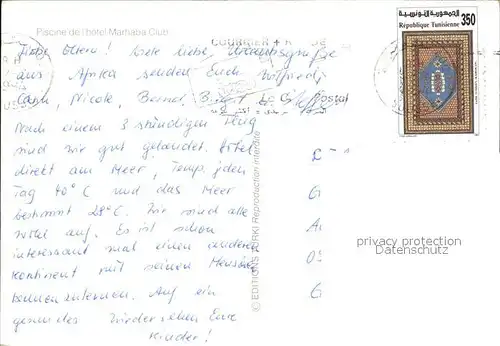 Piscine de l'hotel Marhaba Club
COURRIER
الجمهورية التونسية
350
République Tunisienne
Liebe Eltern! Viele liebe Urlaubsgrüße
aus Afrika senden Euch
Nicole, Bernd,
Nach einem 3 stündigen Flug
sind wir gut gelandet. Hotel
direkt am Meer, Temp. jeden
Tag 40°C und das Meer
bestimmt 28°C. Wir sind alle
wohl auf. Es ist schon
interessant mal einen anderen
Kontinent mit seinen Menschen
kennenzulernen. Auf ein
gesundes Wiedersehen Eure
Kinder!
© EDITIONS Reproduction interdite
Postal
privacy protection
Datenschutz